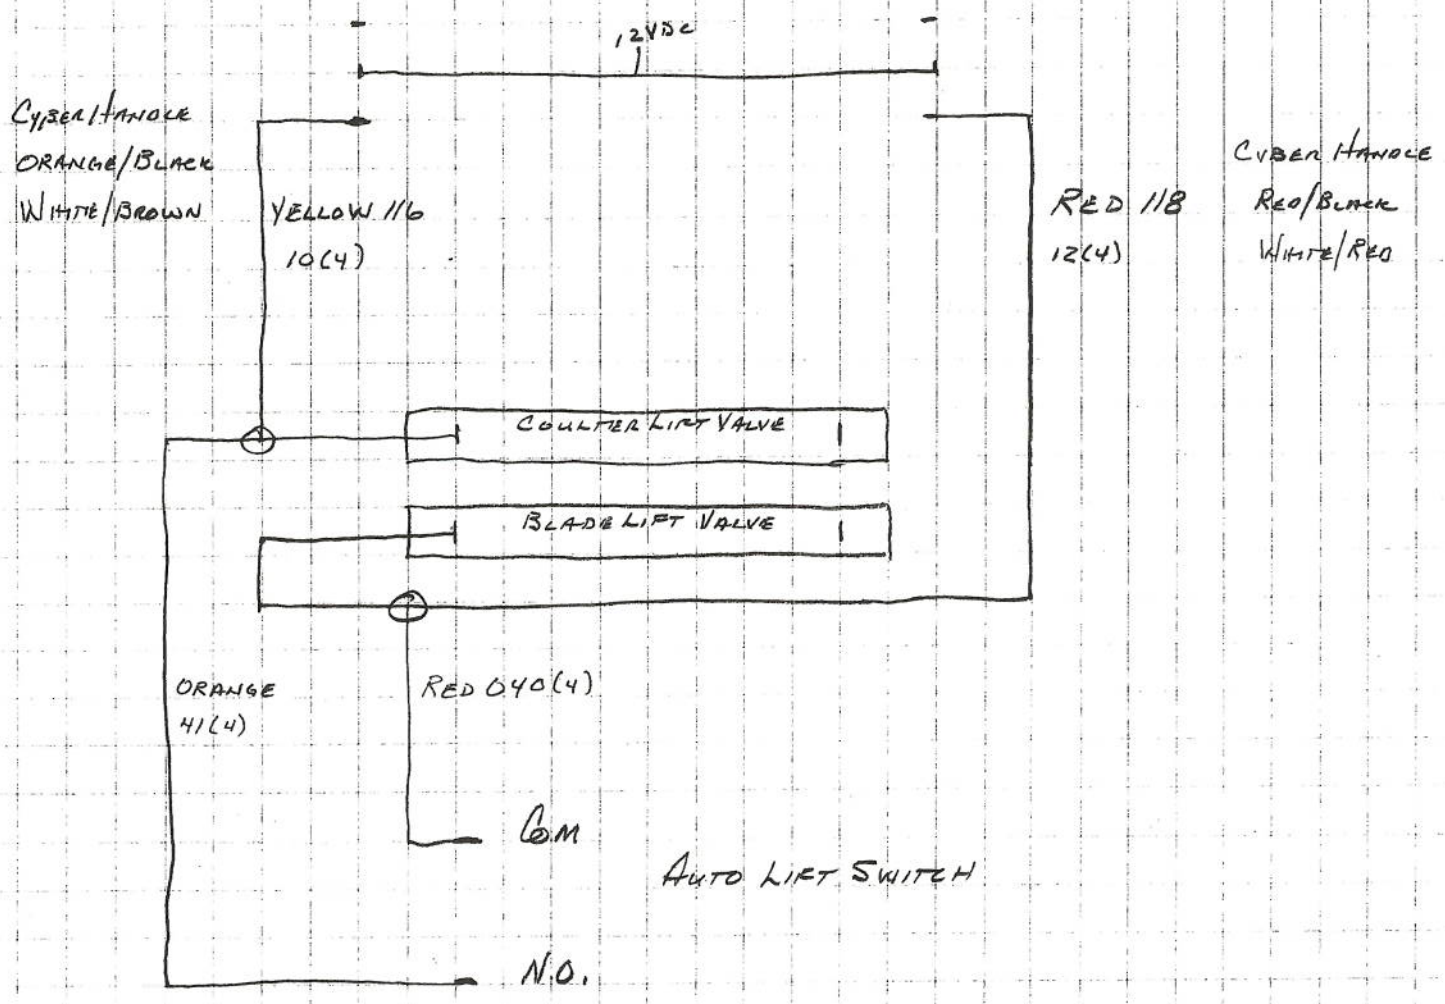 12VDC
CYBER HANDLE
ORANGE/BLACK
WHITE/BROWN
YELLOW 116
10(4)
RED 118
12(4)
CYBER HANDLE
RED/BLACK
WHITE/RED
COULTER LIFT VALVE
BLADE LIFT VALVE
ORANGE
41(4)
RED 040(4)
COM
AUTO LIFT SWITCH
N.O.